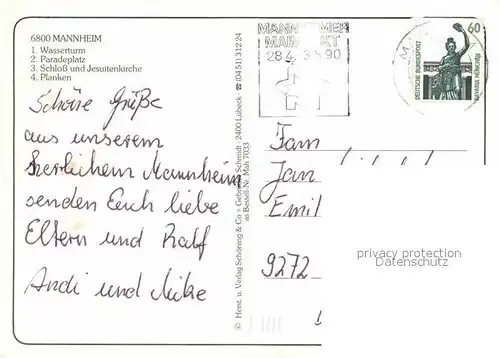 6800 MANNHEIM
1. Wasserturm
2. Paradeplatz
3. Schloß und Jesuitenkirche
4. Planken
Schöne Grüße
aus unserem
herrlichem Mannheim
senden Euch liebe
Eltern und Ralf
Andi und Mike
© Herst. u. Verlag Schöning & Co + Gebrüder Schmidt · 2400 Lübeck · ☎ (04 51) 3 12 24
as Bestell-Nr. Mah 7033
MANNHEIMER
MAIMARKT
28.4. 90
60
DEUTSCHE BUNDESPOST
BAVARIA MÜNCHEN
Fam
Jan
Emil
9272
privacy protection
Datenschutz